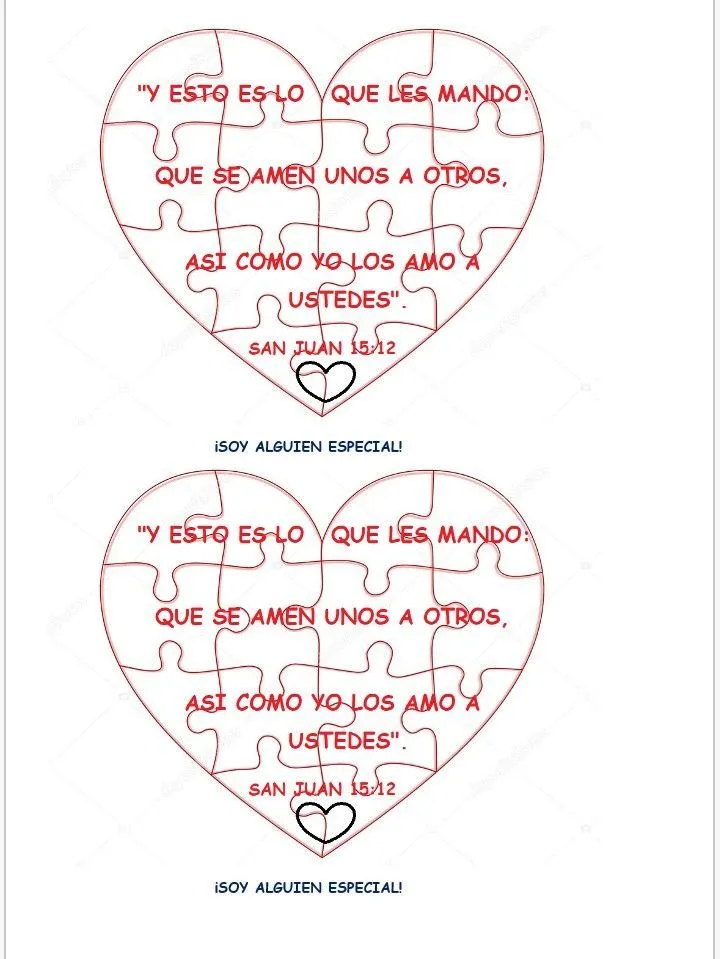 "Y ESTO ES LO QUE LES MANDO:
QUE SE AMEN UNOS A OTROS,
ASI COMO YO LOS AMO A
USTEDES".
SAN JUAN 15:12
¡SOY ALGUIEN ESPECIAL!
"Y ESTO ES LO QUE LES MANDO:
QUE SE AMEN UNOS A OTROS,
ASI COMO YO LOS AMO A
USTEDES".
SAN JUAN 15:12
¡SOY ALGUIEN ESPECIAL!